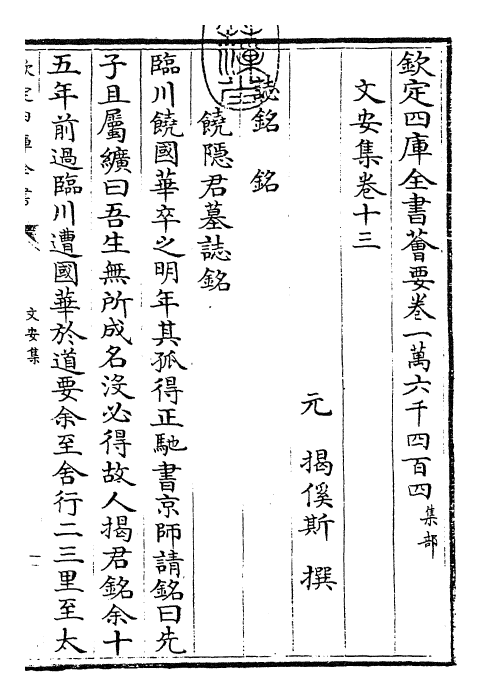 欽定四庫全書薈要卷一萬六千四百四 集部
文安集卷十三
元 揭傒斯 撰
誌銘 銘
饒隱君墓誌銘
臨川饒國華卒之明年其孤得正馳書京師請銘曰先
子且屬纊曰吾生無所成名沒必得故人揭君銘余十
五年前過臨川遭國華於道要余至舍行二三里至太
欽定四庫全書
文安集
一